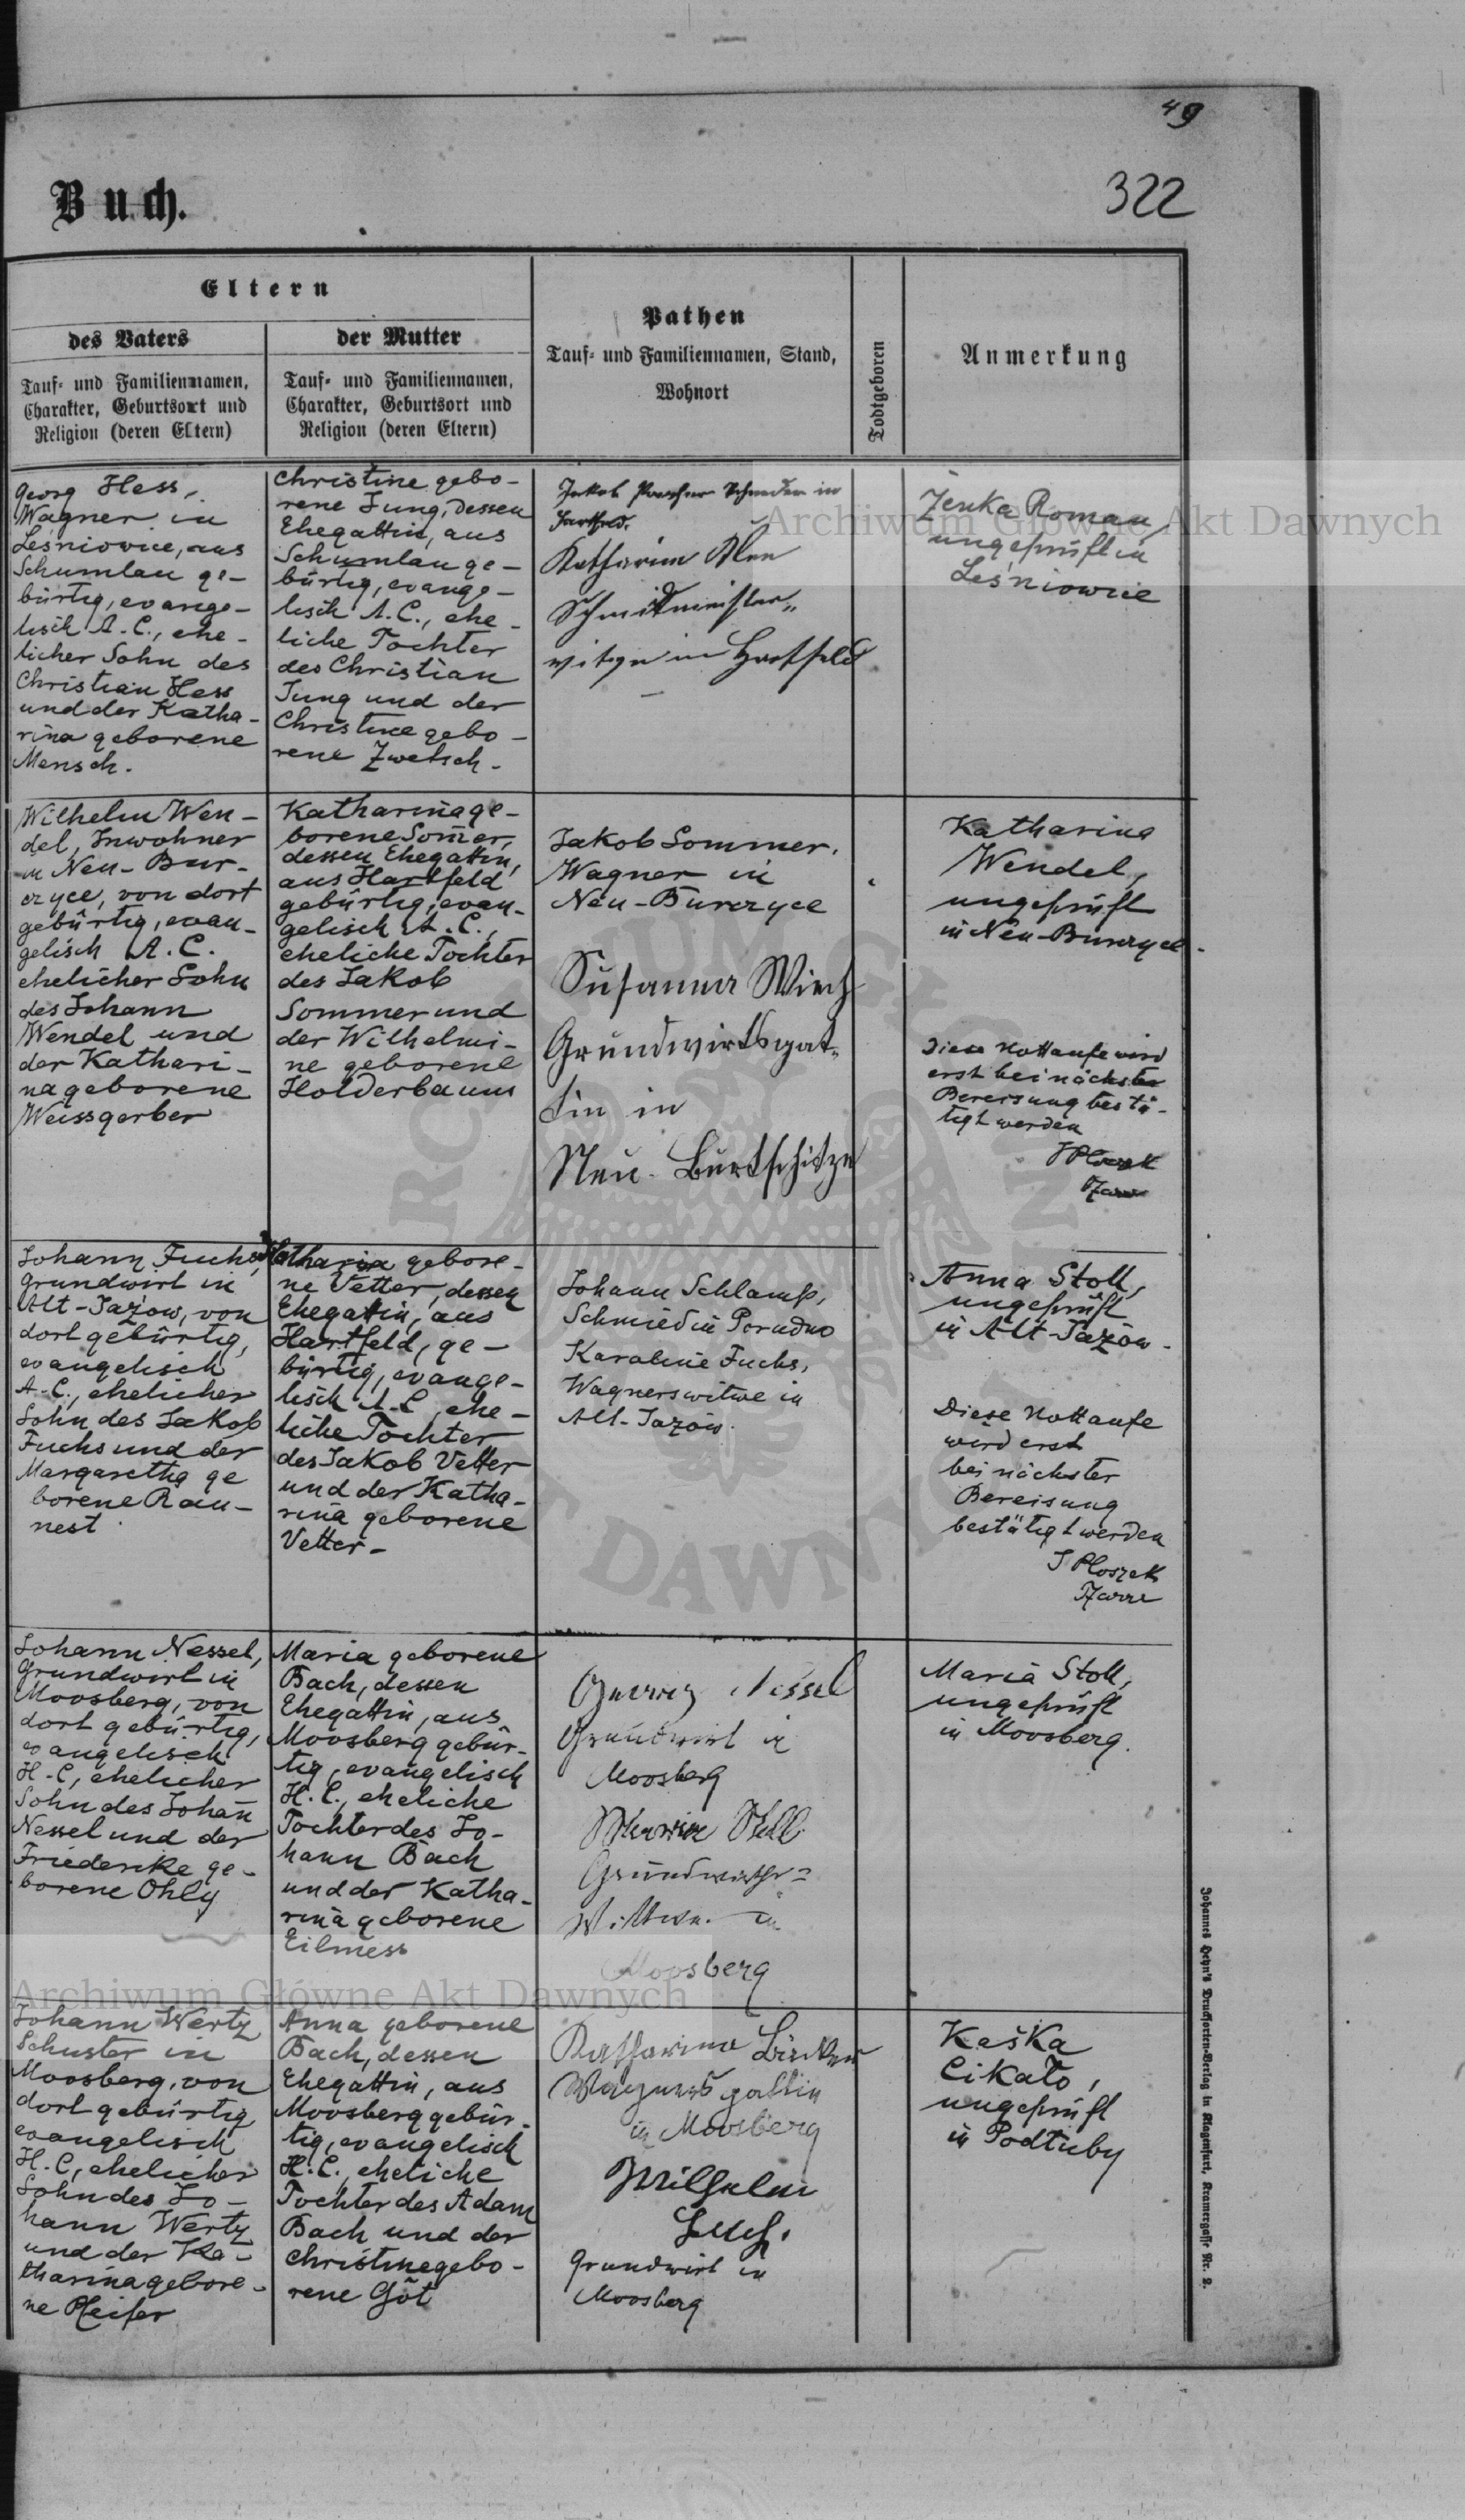 49
322
Buch.
Eltern
des Vaters
Tauf- und Familiennamen,
Charakter, Geburtsort und
Religion (deren Eltern)
der Mutter
Tauf- und Familiennamen,
Charakter, Geburtsort und
Religion (deren Eltern)
Pathen
Tauf- und Familiennamen, Stand,
Wohnort
Todtgeboren
Anmerkung
Georg Hess,
Wagner in
Leśniovice, aus
Schumlau ge-
bürtig, evange-
lisch A.C., ehe-
licher Sohn des
Christian Hess
und der Katha-
rina geborene
Mensch.
Christine gebo-
rene Jung, dessen
Ehegattin, aus
Schumlau ge-
bürtig, evange-
lisch A.C., ehe-
liche Tochter
des Christian
Jung und der
Christine gebo-
rene Zwetsch.
Jakob Schneider in
Hartfeld.
Katharina
Schmidmeisters-
witwe in Hartfeld
Zenka Roman,
ungeprüft in
Leśniowice
Wilhelm Wen-
del, Inwohner
in Neu-Bur-
czyce, von dort
gebürtig, evan-
gelisch A.C.
ehelicher Sohn
des Johann
Wendel und
der Kathari-
na geborene
Weissgerber
Katharina ge-
borene Som̄er,
dessen Ehegattin,
aus Hartfeld
gebürtig, evan-
gelisch A.C.,
eheliche Tochter
des Jakob
Sommer und
der Wilhelmi-
ne geborene
Holderbaum
Jakob Sommer,
Wagner in
Neu-Burczyce
Susanna Wirth
Grundwirtsgat-
tin in
Neu-Burtschitze
Katharina
Wendel,
ungeprüft
in Neu-Burczyce.
Diese Nottaufe wird
erst bei nächster
Bereisung bestä-
tigt werden
J Ploszek
Pfarrer
Johann Fuchs,
Grundwirt in
Alt-Jazow, von
dort gebürtig,
evangelisch
A.C., ehelicher
Sohn des Jakob
Fuchs und der
Margaretha ge
borene Rau-
nest
Katharina gebore-
ne Vetter, dessen
Ehegattin, aus
Hartfeld, ge-
bürtig, evange-
lisch A.C, ehe-
liche Tochter
des Jakob Vetter
und der Katha-
rina geborene
Vetter-
Johann Schlamp,
Schmied in Porudno
Karoline Fuchs,
Wagnerswitwe in
Alt-Jazów.
Anna Stoll,
ungeprüft
in Alt-Jazów.
Diese Nottaufe
wird erst
bei nächster
Bereisung
bestätigt werden
J Ploszek
Pfarrer
Johann Nessel,
Grundwirt in
Moosberg, von
dort gebürtig,
evangelisch
H.C, ehelicher
Sohn des Johan̄
Nessel und der
Friederike ge-
borene Ohly
Maria geborene
Bach, dessen
Ehegattin, aus
Moosberg gebür-
tig, evangelisch
H.C., eheliche
Tochter des Jo-
hann Bach
und der Katha-
rina geborene
Eilmess
Nessel
Grundwirt in
Moosberg
Maria Stoll
Grundwirths-
Wittwe in
Moosberg
Maria Stoll,
ungeprüft
in Moosberg.
Johann Wertz
Schuster in
Moosberg, von
dort gebürtig
evangelisch
H.C, ehelicher
Sohn des Jo-
hann Wertz
und der Ka-
tharina gebore-
ne Pfeifer
Anna geborene
Bach, dessen
Ehegattin, aus
Moosberg gebür-
tig, evangelisch
H.C., eheliche
Tochter des Adam
Bach und der
Christine gebo-
rene Göt
Katharina
Wagnersgattin
in Moosberg
Wilhelm
Grundwirt in
Moosberg
Kaśka
Cikało,
ungeprüft
in Podłuby
Johannes Heyn's Drucksorten-Verlag in Klagenfurt, Kramergasse Nr. 2.
Archiwum Główne Akt Dawnych
Archiwum Główne Akt Dawnych